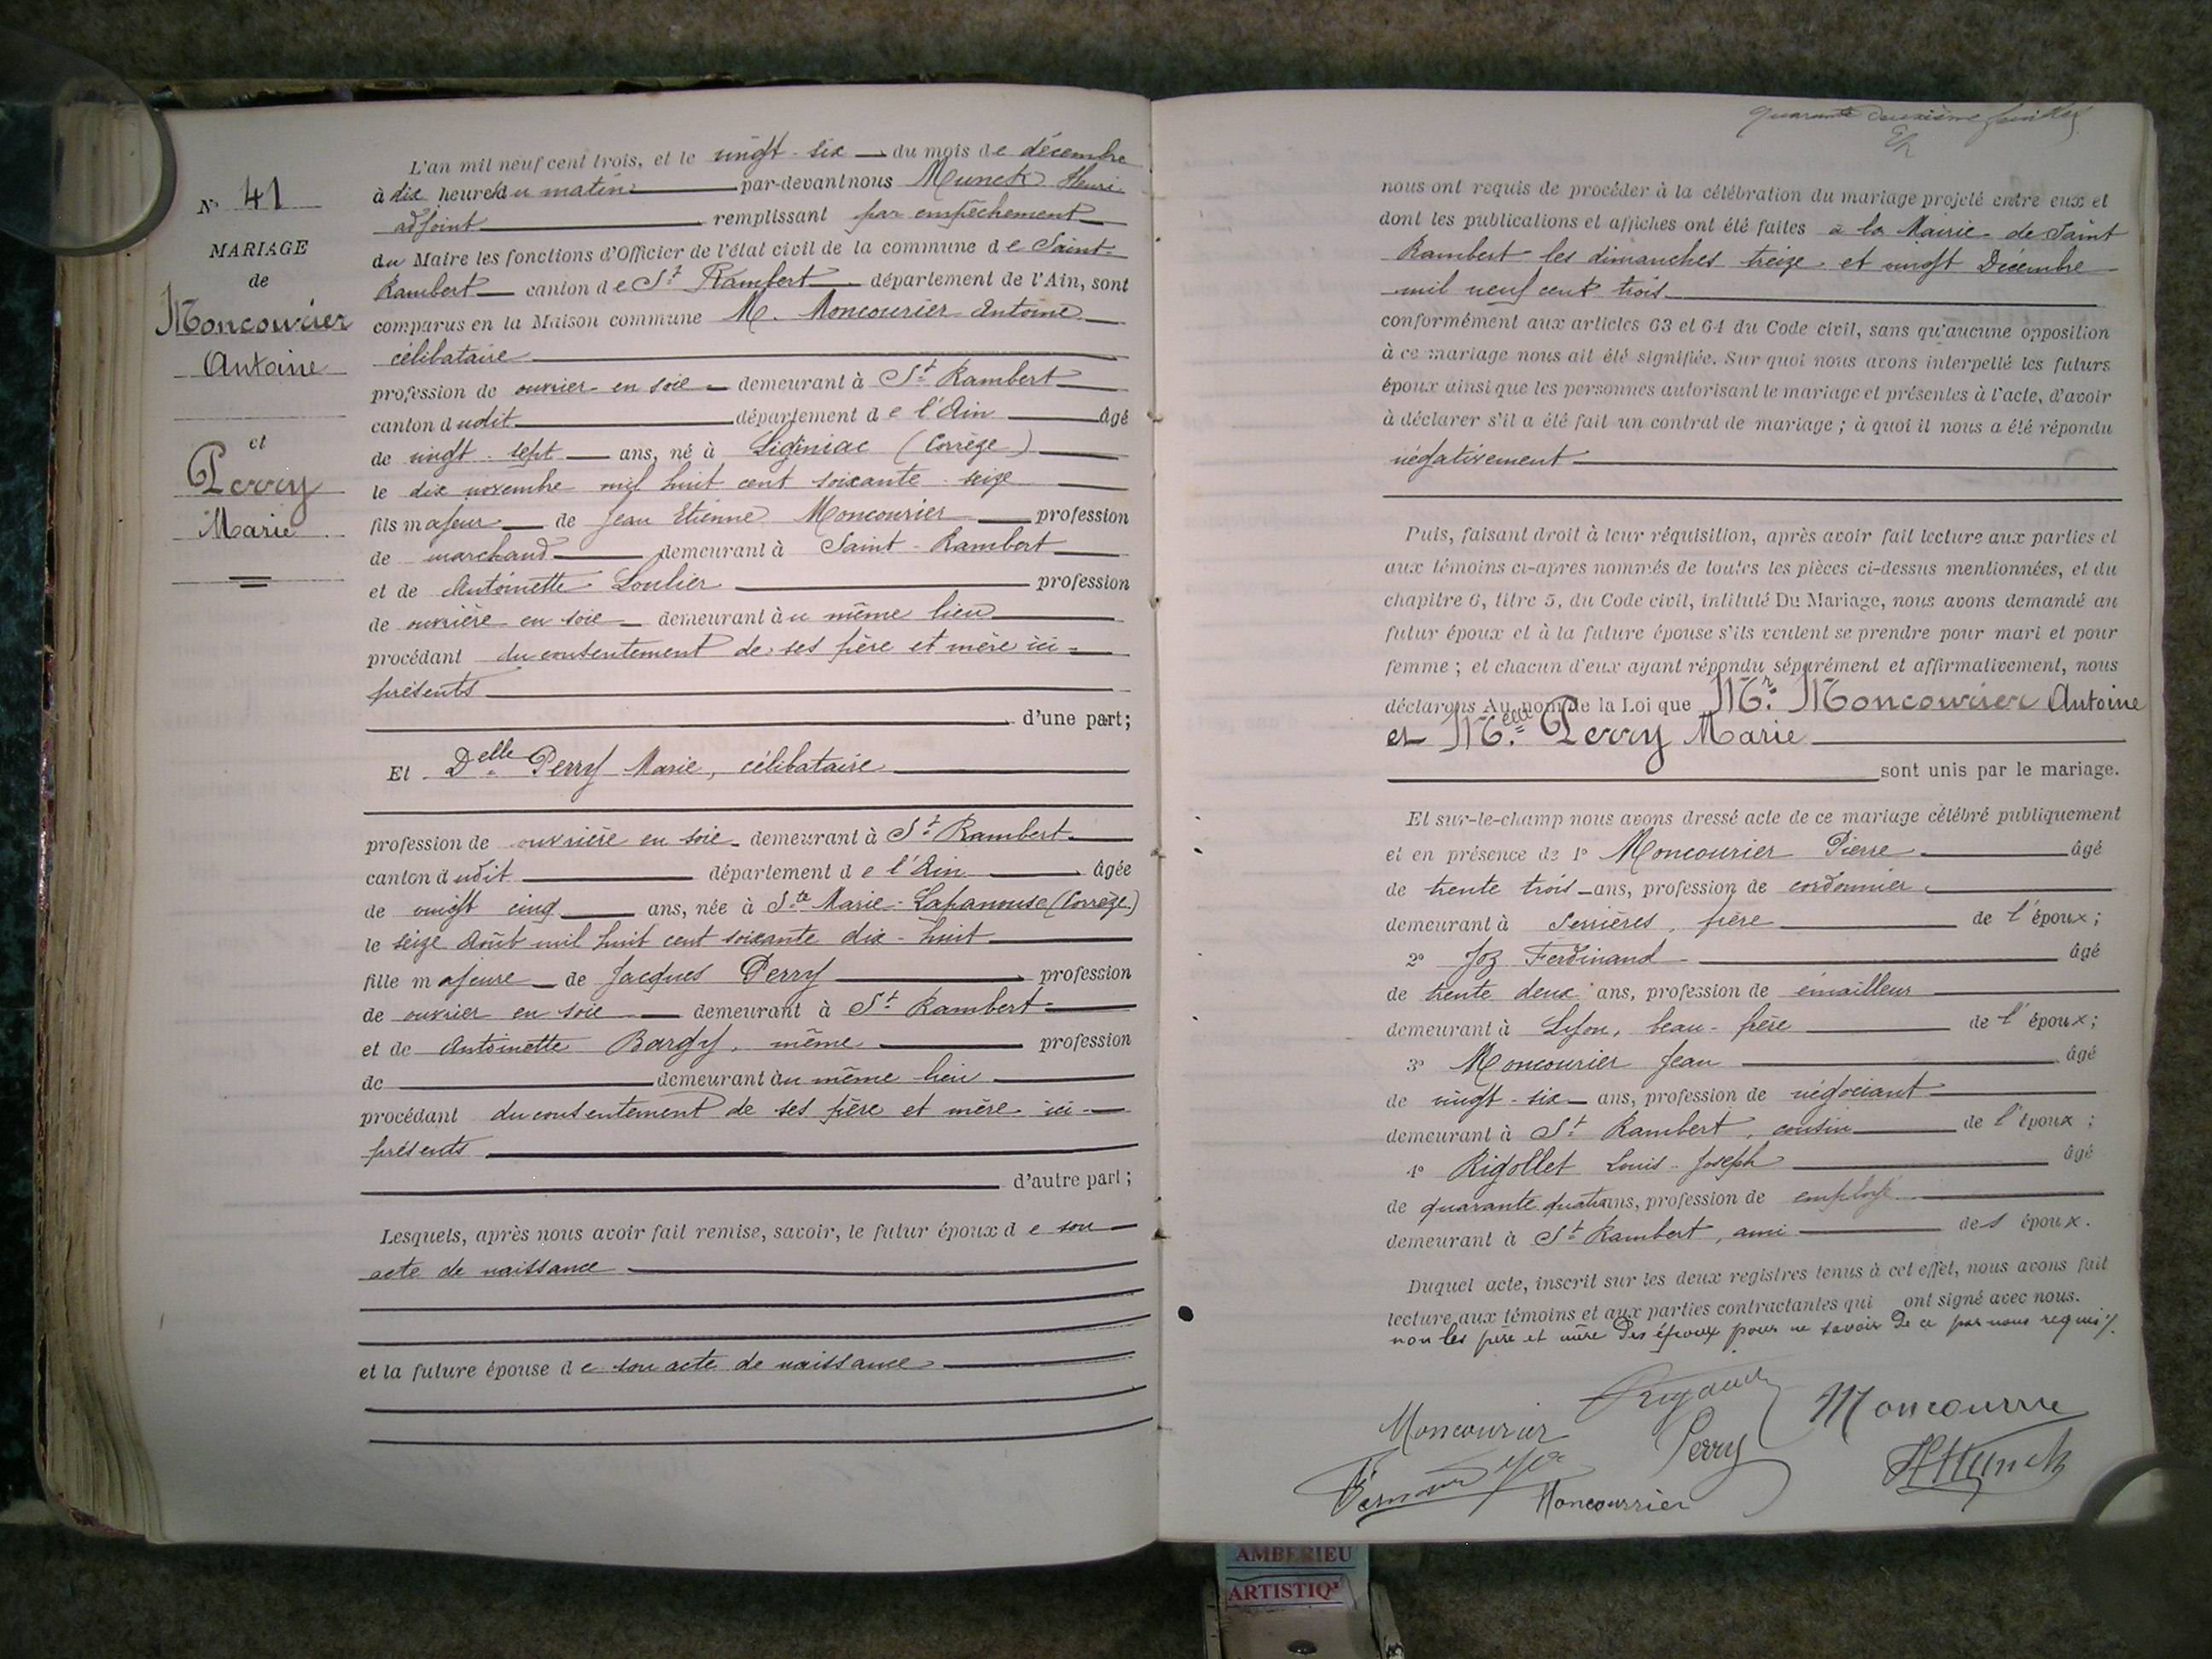 N° 41
MARIAGE
de
Moncourier
Antoine
et
Perry
Marie
L'an mil neuf cent trois, et le vingt-six du mois de décembre
à dix heures du matin par-devant nous Munck Henri
adjoint remplissant par empêchement
du Maire les fonctions d'Officier de l'état civil de la commune de Saint-
Rambert canton de St Rambert département de l'Ain, sont
comparus en la Maison commune M. Moncourier Antoine
célibataire
profession de ouvrier en soie demeurant à St Rambert
canton dudit département de l'Ain âgé
de vingt-sept ans, né à Liginiac (Corrèze)
le dix novembre mil huit cent soixante-seize
fils majeur de Jean Etienne Moncourier profession
de marchand demeurant à Saint-Rambert
et de Antoinette Loulier profession
de ouvrière en soie demeurant au même lieu
procédant du consentement de ses père et mère ici-
présents
d'une part;
Et Delle Perry Marie, célibataire
profession de ouvrière en soie demeurant à St Rambert
canton dudit département de l'Ain âgée
de vingt cinq ans, née à Ste Marie-Lapanouse (Corrèze)
le seize Août mil huit cent soixante dix-huit
fille majeure de Jacques Perry profession
de ouvrier en soie demeurant à St Rambert
et de Antoinette Bargy, même profession
de demeurant au même lieu
procédant du consentement de ses père et mère ici-
présents
d'autre part;
Lesquels, après nous avoir fait remise, savoir, le futur époux de son
acte de naissance
et la future épouse de son acte de naissance
quarante deuxième feuillet
nous ont requis de procéder à la célébration du mariage projeté entre eux et
dont les publications et affiches ont été faites à la Mairie de Saint
Rambert les dimanches treize et vingt Décembre
mil neuf cent trois
conformément aux articles 63 et 64 du Code civil, sans qu'aucune opposition
à ce mariage nous ait été signifiée. Sur quoi nous avons interpellé les futurs
époux ainsi que les personnes autorisant le mariage et présentes à l'acte, d'avoir
à déclarer s'il a été fait un contrat de mariage; à quoi il nous a été répondu
négativement
Puis, faisant droit à leur réquisition, après avoir fait lecture aux parties et
aux témoins ci-après nommés de toutes les pièces ci-dessus mentionnées, et du
chapitre 6, titre 5, du Code civil, intitulé Du Mariage, nous avons demandé au
futur époux et à la future épouse s'ils veulent se prendre pour mari et pour
femme; et chacun d'eux ayant répondu séparément et affirmativement, nous
déclarons Au nom de la Loi que Mr. Moncourier Antoine
et Melle Perry Marie
sont unis par le mariage.
Et sur-le-champ nous avons dressé acte de ce mariage célébré publiquement
et en présence de 1° Moncourier Pierre âgé
de trente trois ans, profession de cordonnier
demeurant à Serrières, frère de l'époux;
2° Joz Ferdinand âgé
de trente deux ans, profession de émailleur
demeurant à Lyon, beau-frère de l'époux;
3° Moncourier Jean âgé
de vingt-six ans, profession de négociant
demeurant à St Rambert, cousin de l'époux;
4° Rigollet Louis-Joseph âgé
de quarante quatre ans, profession de employé
demeurant à St Rambert, ami des époux.
Duquel acte, inscrit sur les deux registres tenus à cet effet, nous avons fait
lecture aux témoins et aux parties contractantes qui ont signé avec nous.
non les père et mère des époux pour ne savoir de ce par nous requis
Moncourier
Perry
Moncourrier
HMunck
AMBERIEU
ARTISTIQ